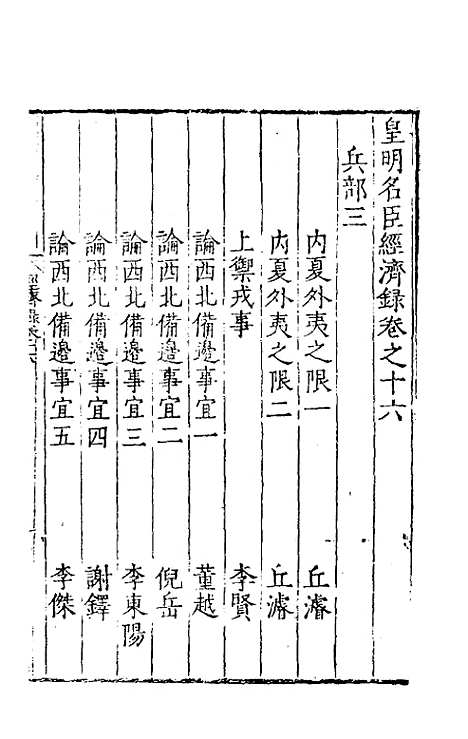 皇明名臣經濟錄卷之十六
兵部三
內夏外夷之限一　丘濬
內夏外夷之限二　丘濬
上禦戎事　李賢
論西北備邊事宜一　董越
論西北備邊事宜二　倪岳
論西北備邊事宜三　李東陽
論西北備邊事宜四　謝鐸
論西北備邊事宜五　李傑